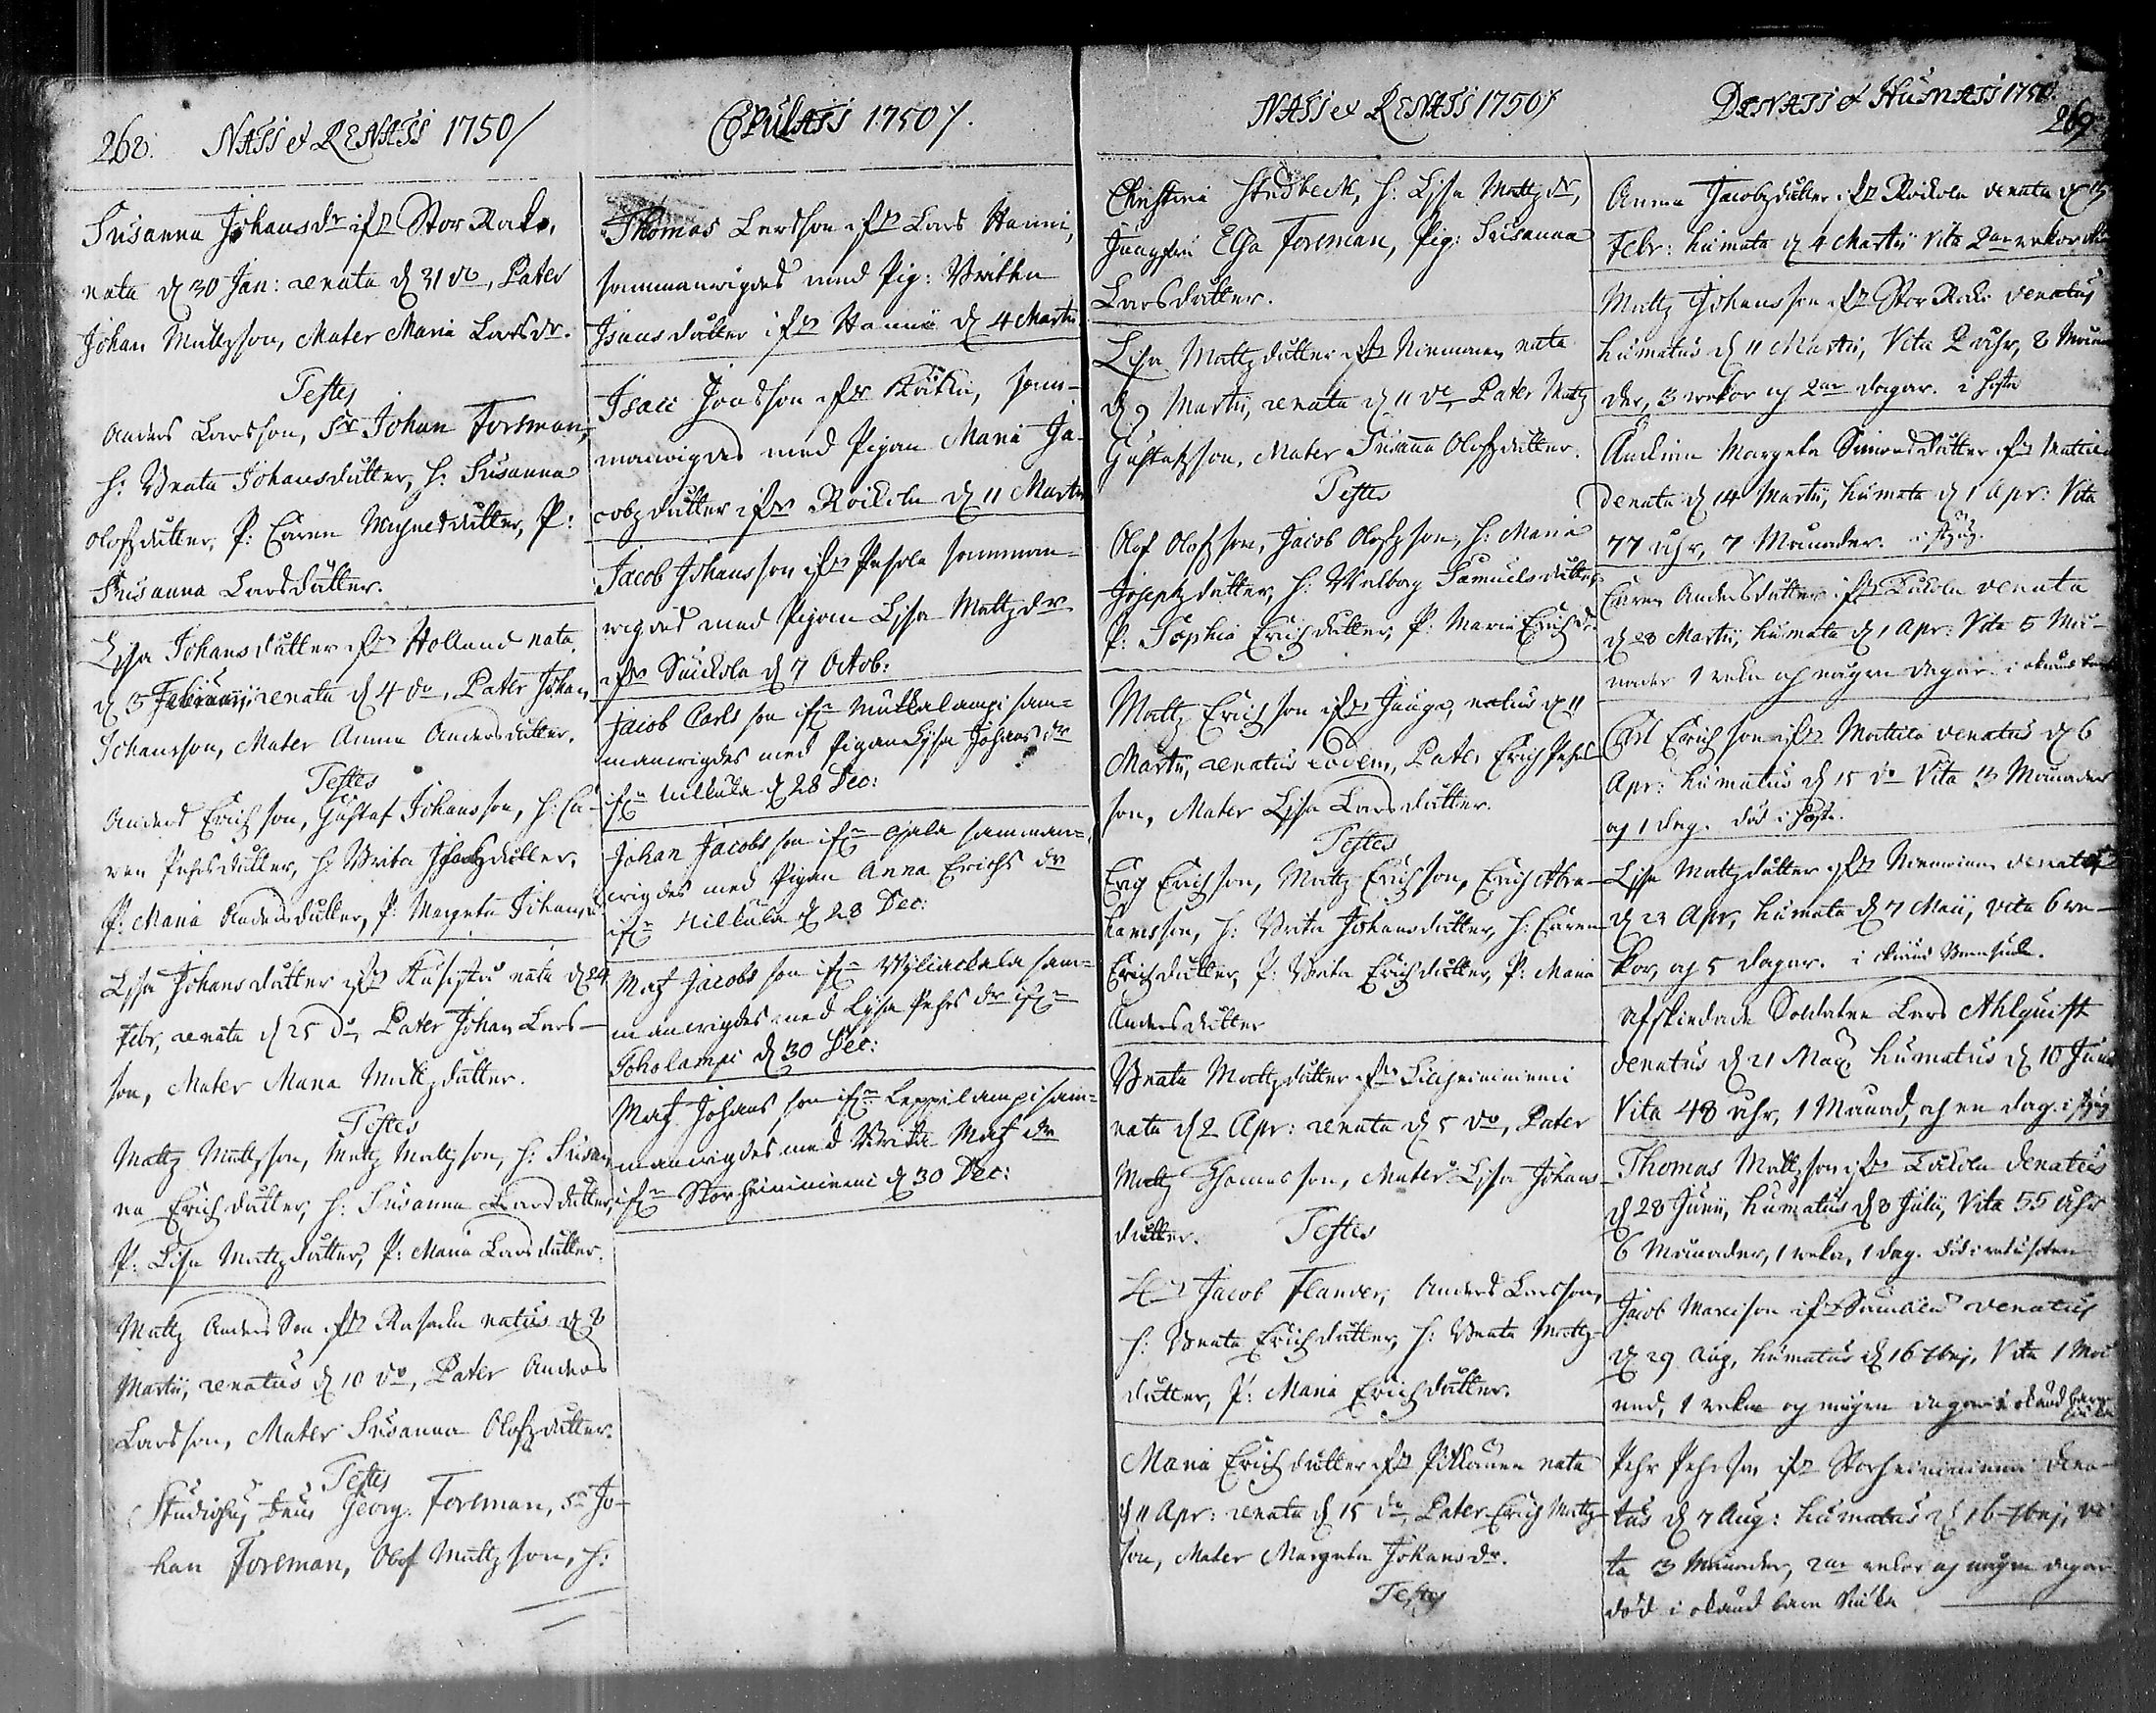 268. NATI & RENATI 1750/
Susanna Johansdr ifrn Stor Raka,
nata d 30 Jan: renata d 31 do, Pater
Johan Mattzson, Mater Maria Larsdr.
Testes
Anders Larsson, Sr Johan Forsman,
h: Beata Johansdutter, h: Susanna
Olofzdutter, P: Caren Magnedutter, P:
Susanna Larsdutter.
Lisa Johansdutter ifrn Holland nata
d 3 Februarij renata d 4 do, Pater Johan
Johansson, Mater Anna Andersdutter.
Testes
Anders Erichson, Gustaf Johansson, h: Ca-
ren Pehrsdutter, h: Brita
P: Maria Andersdutter, P: Margeta Johansd
Lisa Johansdutter ifrn nata d 24
Febr, renata d 25 do, Pater Johan Lars-
son, Mater Maria Mattzdutter.
Testes
Mattz Mattzson, Mattz Mattzson, h: Susan
na Erichdutter, h: Susanna Larsdutter,
P: Lisa Mattzdutter, P: Maria Larsdutter.
Mattz Anders Son ifrn natus d 8
Martii, renatus d 10 do, Pater Anders
Larsson, Mater Susanna Olofzdutter.
Testes
Studiosus Georg. Foreman, Sr Jo-
han Foreman, Olof Mattzson, h:
COPULATI 1750/.
Thomas Larsson ifrn Lars Hanni,
sammanwigdes med Pig: Britha
Isaacsdutter ifrn Hannii d 4 Martii.
Isaac ifrn sam-
manwigdes med Pigan Maria Ja-
cobzdutter ifrn Rockola d 11 Martii
Jacob Johansson ifrn samman-
wigdes med Pigan Lisa Mattzdr
ifrn Suckola d 7 Octob:
Jacob Carls son ifrn Mulkalampi sam-
manwigdes med Pigan Lisa Johans dr
ifrn Uckula d 28 Dec:
Johan Jacobs son ifrn Ojala samman-
wigdes med Pigan Anna Erichs dr
ifrn Uckula d 28 Dec:
Matz Jacobs son ifrn sam-
manwigdes med Lisa Pehrs dr ifrn
Toholampi d 30 Dec:
Matz Johans son ifrn Leppilampi sam-
manwigdes med Brita Matz dr
ifrn Storheininiemi d 30 Dec:
NATI & RENATI 1750/
Christina h: Lisa Mattzdr,
Jungfru Elsa Foreman, Pig: Susanna
Larsdutter.
Lisa Mattzdutter ifrn Niemonen nata
d 9 Martii, renata d 11 do Pater Mattz
Gustafsson, Mater Susanna Olofzdutter.
Testes
Olof Olofzson, Jacob Olofzson, h: Maria
Josephzdutter, h: Walborg Samuelsdutter,
P: Sophia Erichdutter, P: Maria Erichdr
Mattz Erichson ifrn natus d 11
Martii, renatus eodem, Pater Erich Pehrs
son, Mater Lisa Larsdutter.
Testes
Erich Erichson, Mattz Erichson, Erich Abra-
hamsson, h: Brita Johansdutter, h: Caren
Erichdutter, P: Brita Erichdutter, P: Maria
Andersdutter
Beata Mattzdutter ifrn
nata d 2 Apr: renata d 5 do, Pater
Mattz Thomasson, Mater Lisa Johans-
dutter. Testes
Jacob Flander, Anders Larsson,
h: Beata Erichdutter, h: Beata Mattz-
dutter, P: Maria Erichdutter.
Maria Erichdutter ifrn nata
d 11 Apr: renata d 15 do, Pater Erich Mattz-
son, Mater Margeta Johansdr.
Testes
DENATI & HUMATI 1750. 269.
Anna Jacobzdutter ifrn Rockola denata d 13
Febr: humata d 4 Martii Vita 2ne wekor
Mattz Johansson ifrn Stor Raka denatus
humatus d 11 Martii, Vita 2 Ahr, 8 Måna
der, 3 wekor och 2ne dagar. i Hosta
Margeta Simonsdutter ifrn Mattila
denata d 14 Martii, humata d 1 Apr: Vita
77 Ahr, 7 Månader.
Caren Andersdutter ifrn denata
d 28 Martii, humata d 1 Apr: Vita 5 Må-
nader 1 weka och några dagar.
Carl Erichson ifrn Mattila denatus d 6
Apr: humatus d 15 do Vita 3 Månader
och 1 dag. död i Hosta.
Lisa Mattzdutter ifrn Niemonen denata
d 23 Apr, humata d 7 Maii, vita 6 we-
kor, och 5 dagar.
Afskiedade Soldaten Lars Ahlquist
denatus d 21 Maii humatus d 10 Junii
Vita 48 Ahr, 1 Månad, och en dag.
Thomas Mattzson ifrn denatus
d 28 Junii, humatus d 8 Julii, Vita 55 Ahr
6 Månader, 1 weka, 1 dag.
Jacob ifrn denatus
d 29 Aug, humatus d 16 7brj, Vita 1 Må
nad, 1 weka och några dagar i okänd barn
Pehr Pehrson ifrn Storheininiemi dena-
tus d 7 Aug: humatus d 16 7brj, vi
ta 3 Månader, 2ne wekor och några dagar
död i okänd barn Siuka